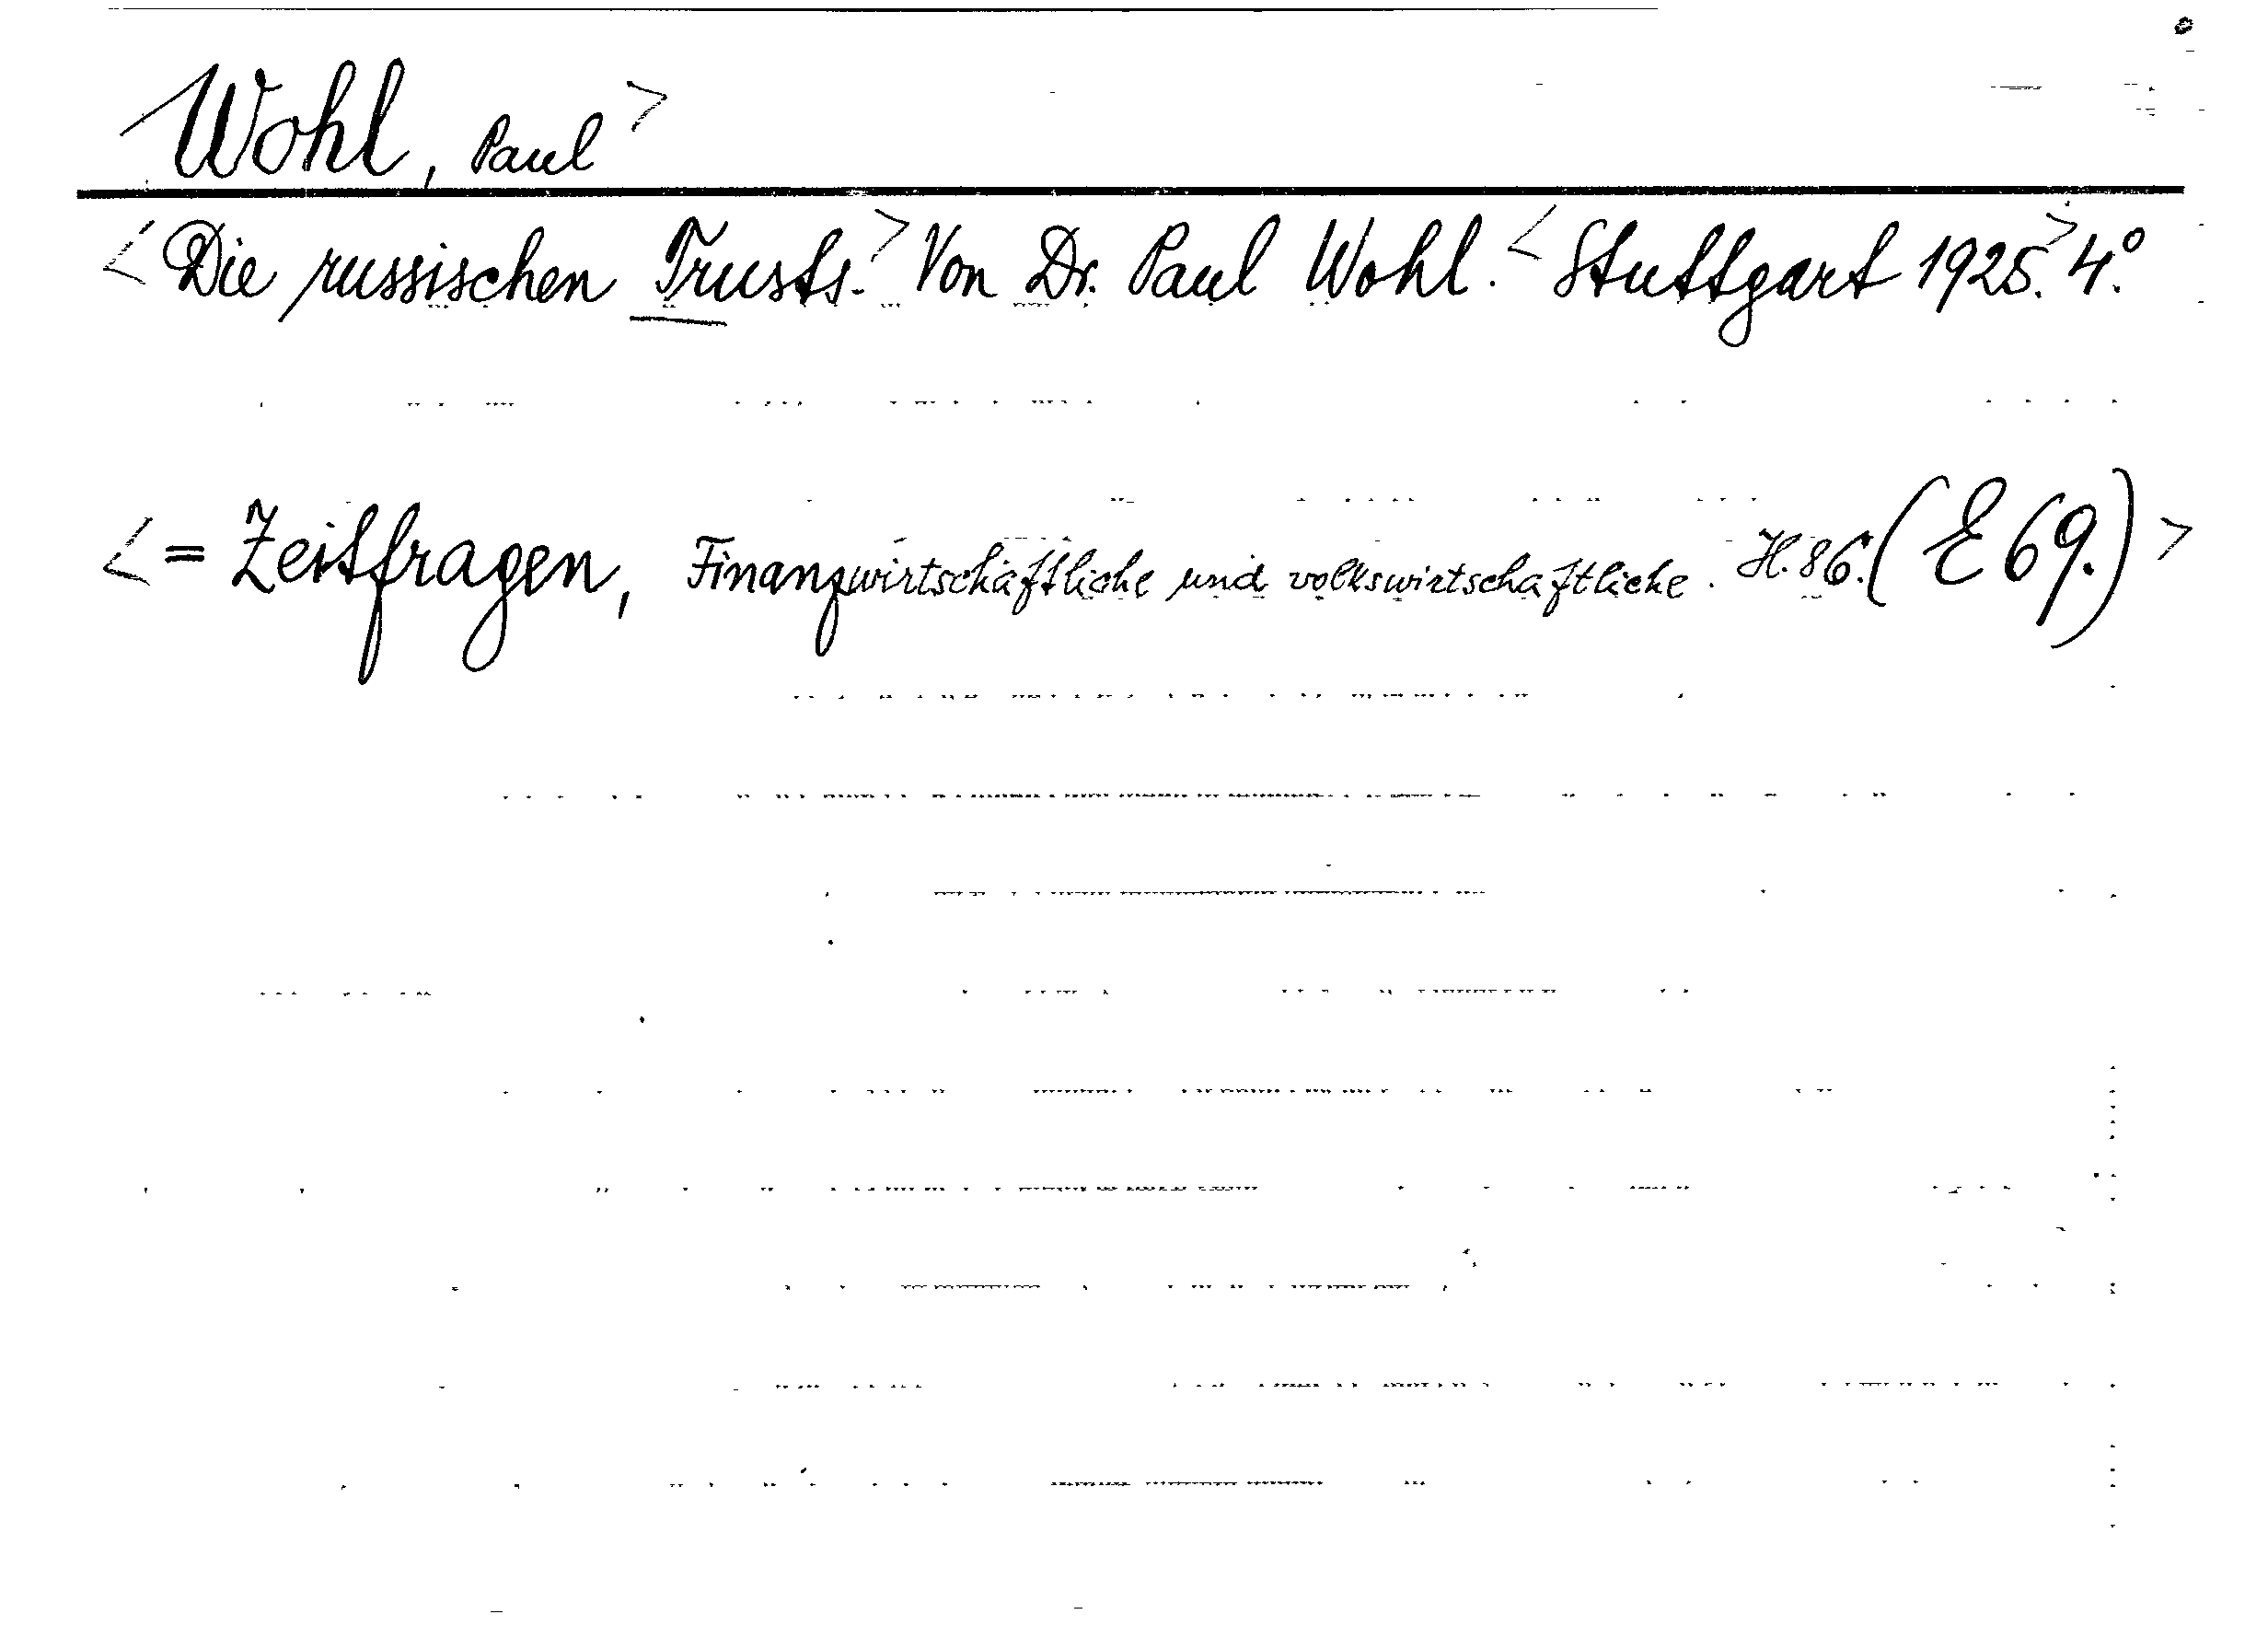 Wohl, Paul>
<Die russischen Trusts.> Von Dr. Paul Wohl. <Stuttgart 1925.> 4°.
<= Zeitfragen, Finanzwirtschaftliche und volkswirtschaftliche. H. 86. (E 69.)>